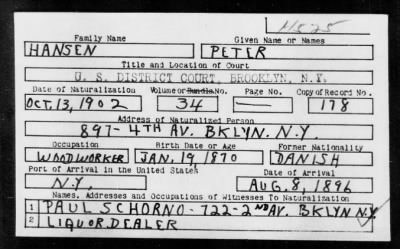 H525
Family Name Given Name or Names
HANSEN PETER
Title and Location of Court
U. S. DISTRICT COURT, BROOKLYN, N.Y.
Date of Naturalization Volume or Bundle No. Page No. Copy of Record No.
OCT. 13, 1902 34 — 178
Address of Naturalized Person
897- 4TH AV. BKLYN. N.Y.
Occupation Birth Date or Age Former Nationality
WOODWORKER JAN. 19, 1870 DANISH
Port of Arrival in the United States Date of Arrival
N.Y. AUG. 8, 1896
Names, Addresses and Occupations of Witnesses To Naturalization
1 PAUL SCHORNO - 722-2ND AV. BKLYN N.Y.
2 LIQUOR DEALER